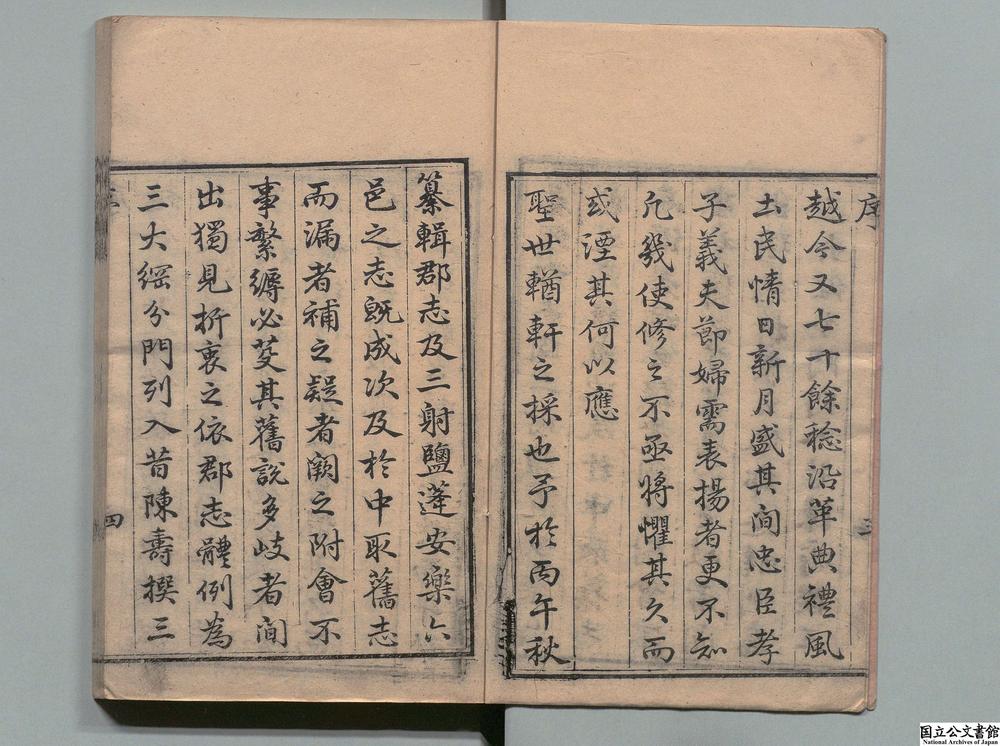 序
三
越今又七十餘稔沿革典禮風
土民情日新月盛其间忠臣孝
子義夫節婦需表揚者更不知
凡幾使修之不亟將懼其久而
或湮其何以應
聖世輶軒之採也予於丙午秋
纂輯郡志及三射鹽蓬安樂六
邑之志既成次及於中取舊志
而漏者補之疑者闕之附會不
事繁縟必芟其舊說多歧者间
出獨見折衷之依郡志體例為
三大綱分門列入昔陳壽撰三
四
国立公文書館
National Archives of Japan